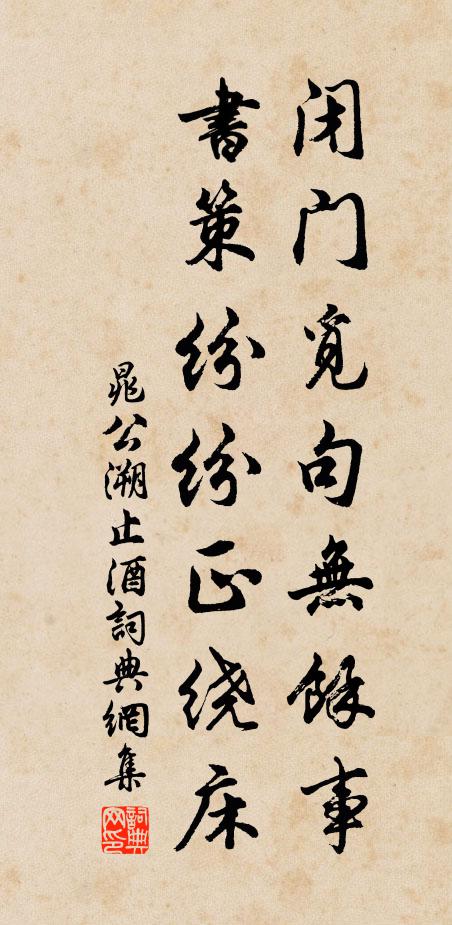 闭门觅句無餘事
書策纷纷正绕床
晁公溯止酒詞典網集
詞典網印